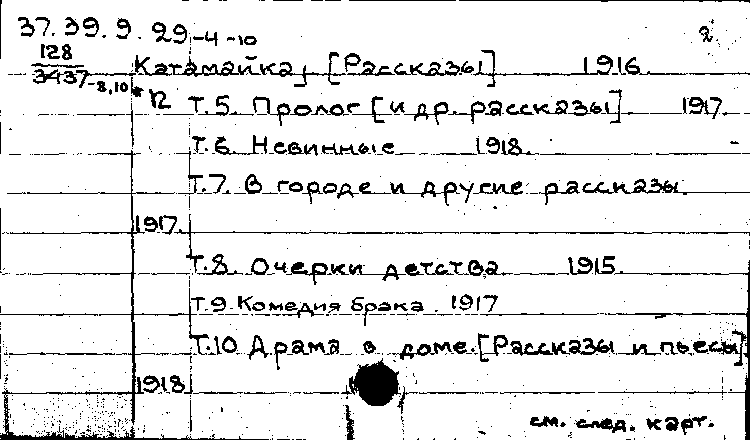 37.39.9.29-4-10 2
128
3437-8,10 Катамайка, [Рассказы] 1916.
* 12 Т.5. Пролог [и др. рассказы]. 1917.
Т.6. Невинные 1918.
Т.7. В городе и другие рассказы.
1917.
Т.8. Очерки детства 1915.
Т.9. Комедия брака. 1917
Т.10 Драма в доме. [Рассказы и пьесы]
1918
см. след. карт.